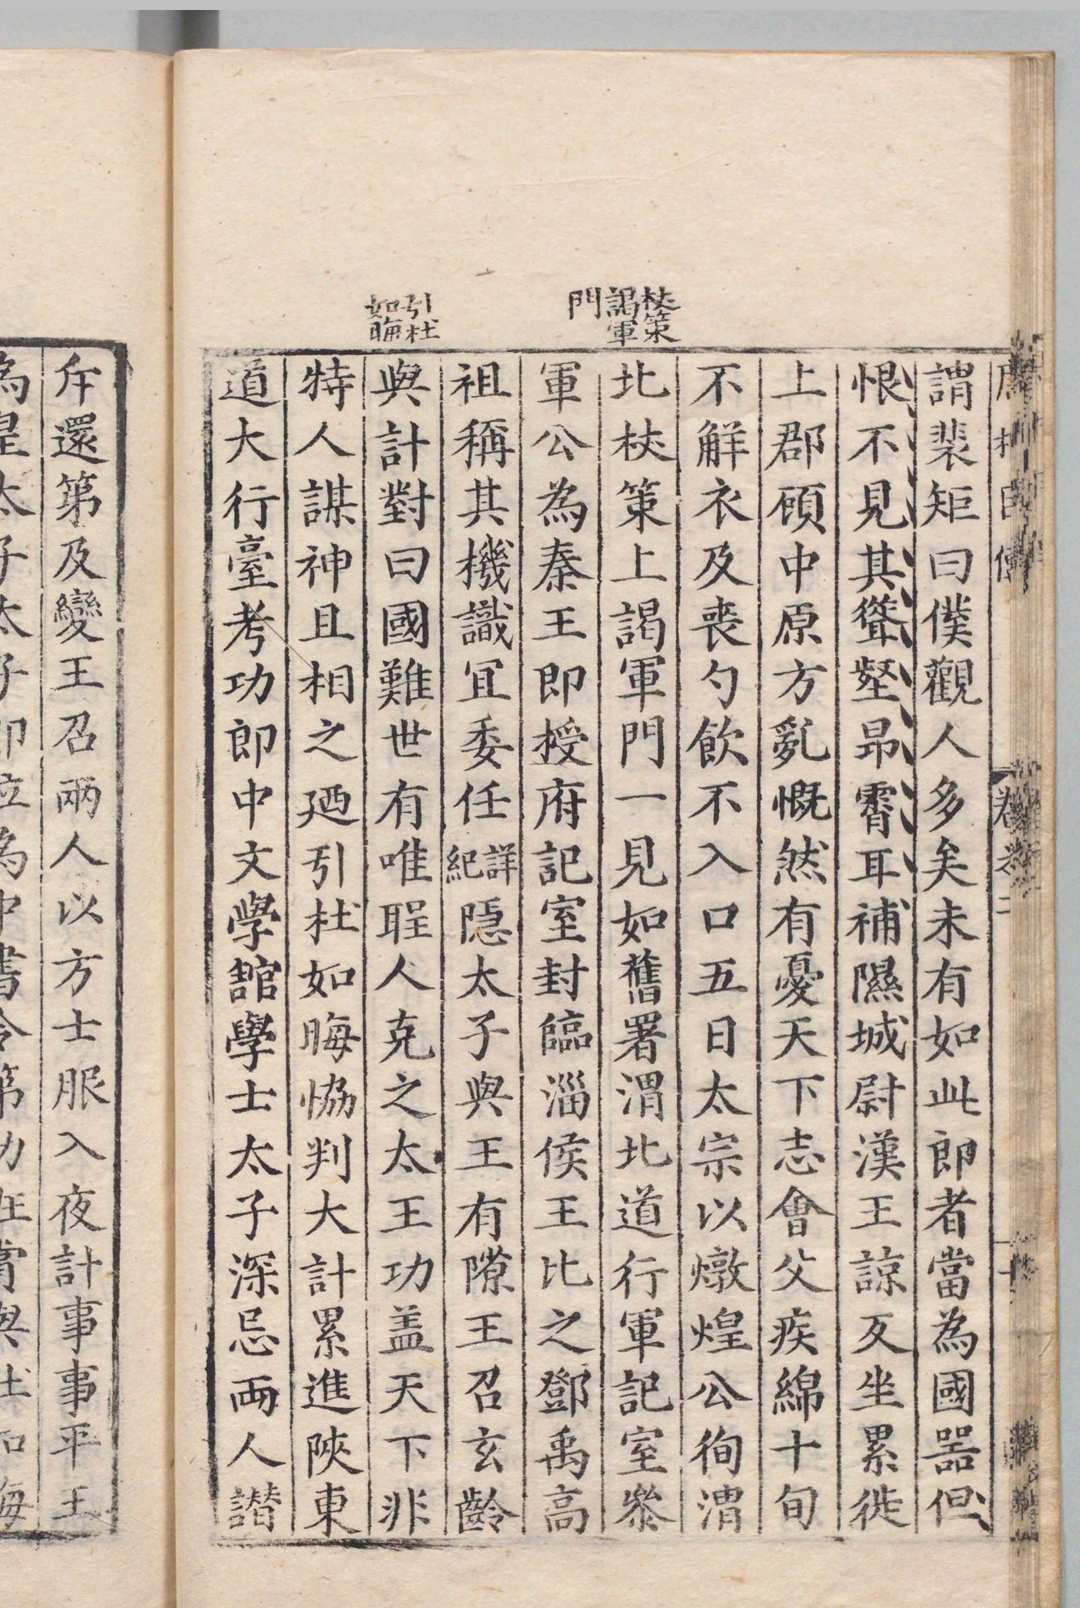 杖策
謁軍
門
引杜
如晦
謂裴矩曰僕觀人多矣未有如此郎者當為國噐但
恨不見其聳壑昻霄耳補隰城尉漢王諒反坐累徙
上郡顧中原方亂慨然有憂天下志會父疾綿十旬
不解衣及喪勺飲不入口五日太宗以燉煌公徇渭
北杖策上謁軍門一見如舊署渭北道行軍記室參
軍公為秦王即授府記室封臨淄侯王比之鄧禹高
祖稱其機識宜委任詳紀隱太子與王有隙王召玄齡
與計對曰國難世有唯聖人克之大王功盖天下非
特人謀神且相之廼引杜如晦恊判大計累進陝東
道大行臺考功郎中文學館學士太子深忌兩人譖
斥還第及變王召兩人以方士服入夜計事事平王